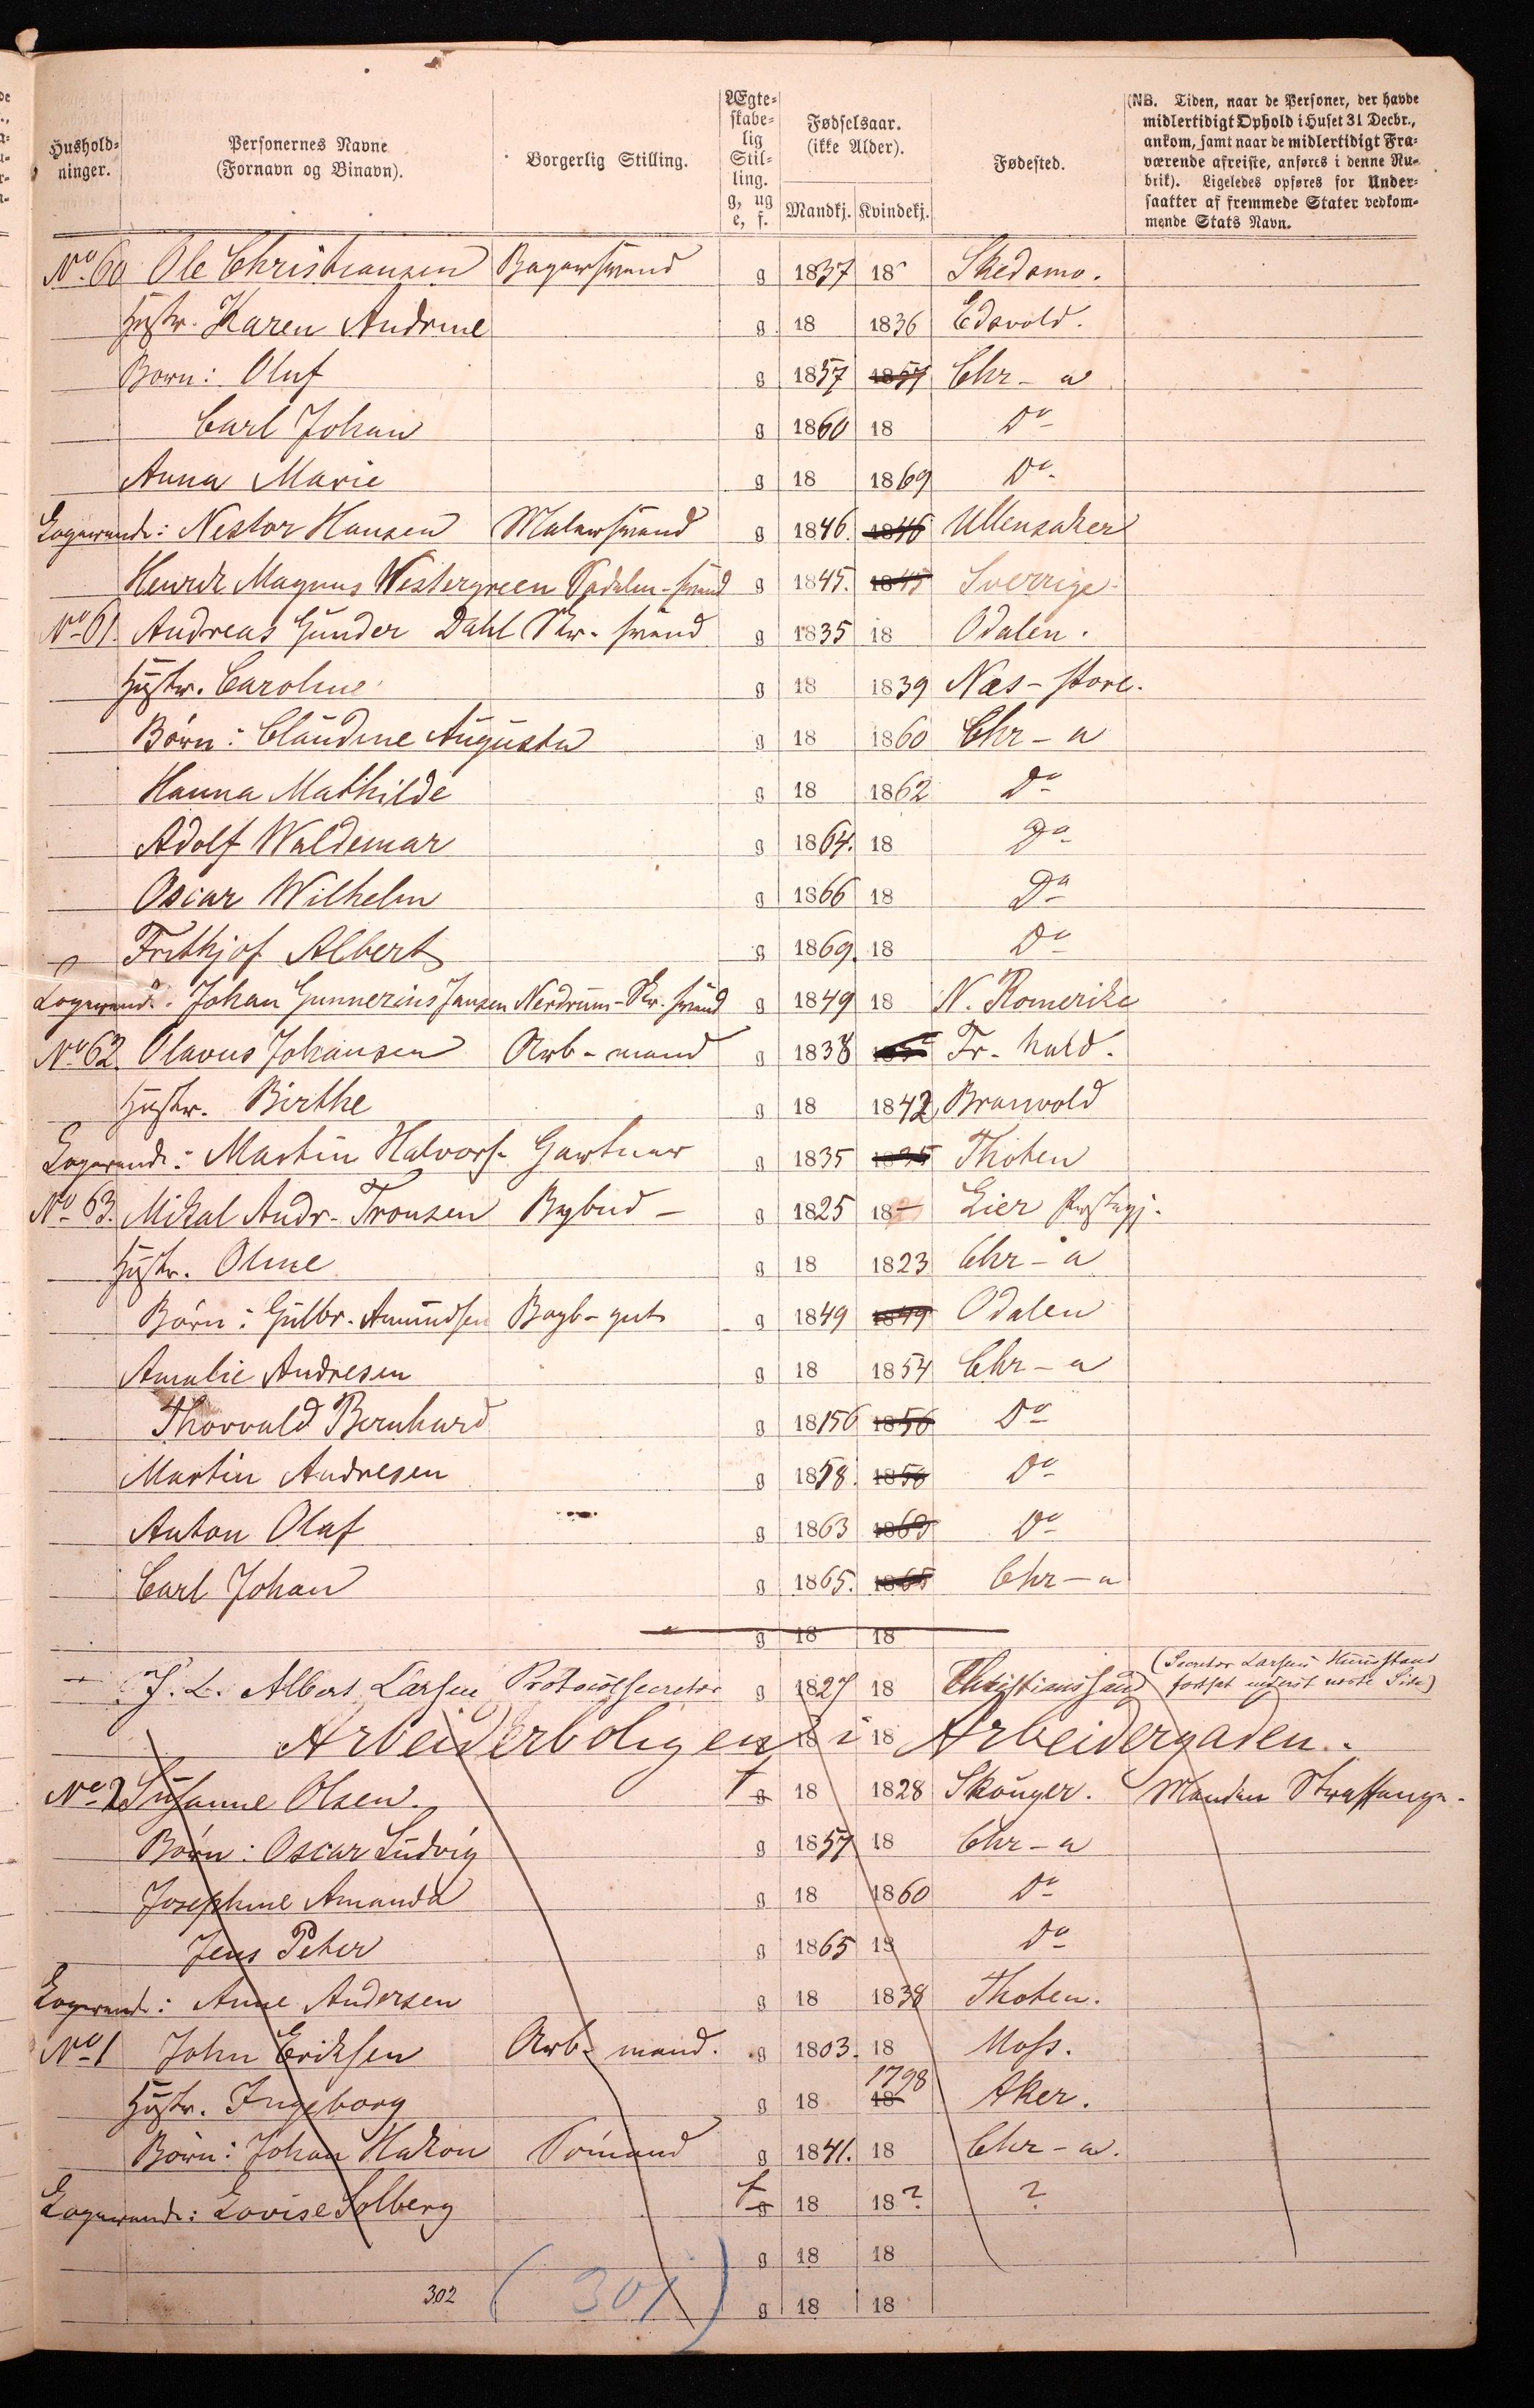 Hushold-
ninger.
Personernes Navne
(Fornavn og Binavn).
Borgerlig Stilling.
Ægte-
skabe-
lig
Stil-
ling.
g, ug
e, f.
Fødselsaar.
(ikke Alder).
Mandkj. Kvindekj.
Fødested.
(NB. Tiden, naar de Personer, der havde
midlertidigt Ophold i Huset 31 Decbr.,
ankom, samt naar de midlertidigt Fra-
værende afreiste, anføres i denne Ru-
brik). Ligeledes opføres for Under-
saatter af fremmede Stater vedkom-
mende Stats Navn.
No. 60 Ole Christiansen Bagersvend g 1837 18 Skedsmo.
Hustr. Karen Andrine g 18 1836 Edsvold.
Børn: Oluf g 1857 1857 Chr-a
Carl Johan g 1860 18 Do
Anna Marie g 18 1869 Do
Logerende: Nestor Hansen Malersvend g 1846. 1846 Ullensaker
Henrik Magnus Westergreen Sadelm-svend g 1845. 1845 Sverrige
No. 61. Andreas Gunder Dahl Skr. svend g 1835 18 Odalen.
Hustr. Caroline g 18 1839 Næs-store.
Børn: Claudine Augusta g 18 1860 Chr-a
Hanna Mathilde g 18 1862 Do
Adolf Waldemar g 1864. 18 Do
Oscar Wilhelm g 1866 18 Do
Frithjof Albert g 1869. 18 Do
Logerend. Johan Gunnerius Jansen Nerdrum-Skr. svend g 1849 18 N. Romerike
No. 62. Olavus Johansen Arb-mand g 1838 Fr. hald.
Hustr. Birthe g 18 1842 Branvold
Logerende: Martin Halvors. Gartner g 1835 1835 Thoten
No. 63. Mikal Andr. Tronsen Bybud - g 1825 18 Lier Prstegj.
Hustr. Oline g 18 1823 Chr-a
Børn: Gulbr. Amundsen Bagb-gut g 1849 1849 Odalen
Amalie Andresen g 18 1854 Chr-a
Thorvald Bernhard g 1856 1856 Do
Martin Andresen g 1858. 1858 Do
Anton Olaf g 1863 1863 Do
Carl Johan g 1865. 1865 Chr-a
g 18 18
J. L. Albert Larsen Protocolsecretær g 1827 18 Christianssand (Secretær Larsens Huusstand
fortsat nederst næste Side)
Arbeiderboligen i Arbeidergaden.
18 18
No. 2 Susanne Olsen. f g 18 1828 Skouger. Manden Straffange.
Børn: Oscar Ludvig g 1857 18 Chr-a
Josephine Amanda g 18 1860 Do
Jens Peter g 1865 18 Do
Logerende: Anne Andersen g 18 1838 Thoten.
No. 1 John Eriksen Arb-mand. g 1803. 18 Moss.
Hustr. Ingeborg g 18 18 1798 Aker.
Børn: Johan Hakon Sømand g 1841. 18 Chr-a.
Logerende: Lovise Solberg f g 18 18? ?
g 18 18
302 (301) g 18 18